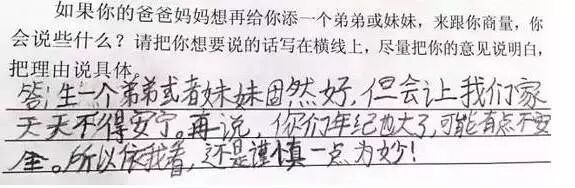 如果你的爸爸妈妈想再给你添一个弟弟或妹妹，来跟你商量，你
会说些什么？请把你想要说的话写在横线上，尽量把你的意见说明白，
把理由说具体。
答：生一个弟弟或者妹妹固然好，但会让我们家
天天不得安宁。再说，你们年纪也大了，可能有点不安
全。所以依我看，还是谨慎一点为妙！